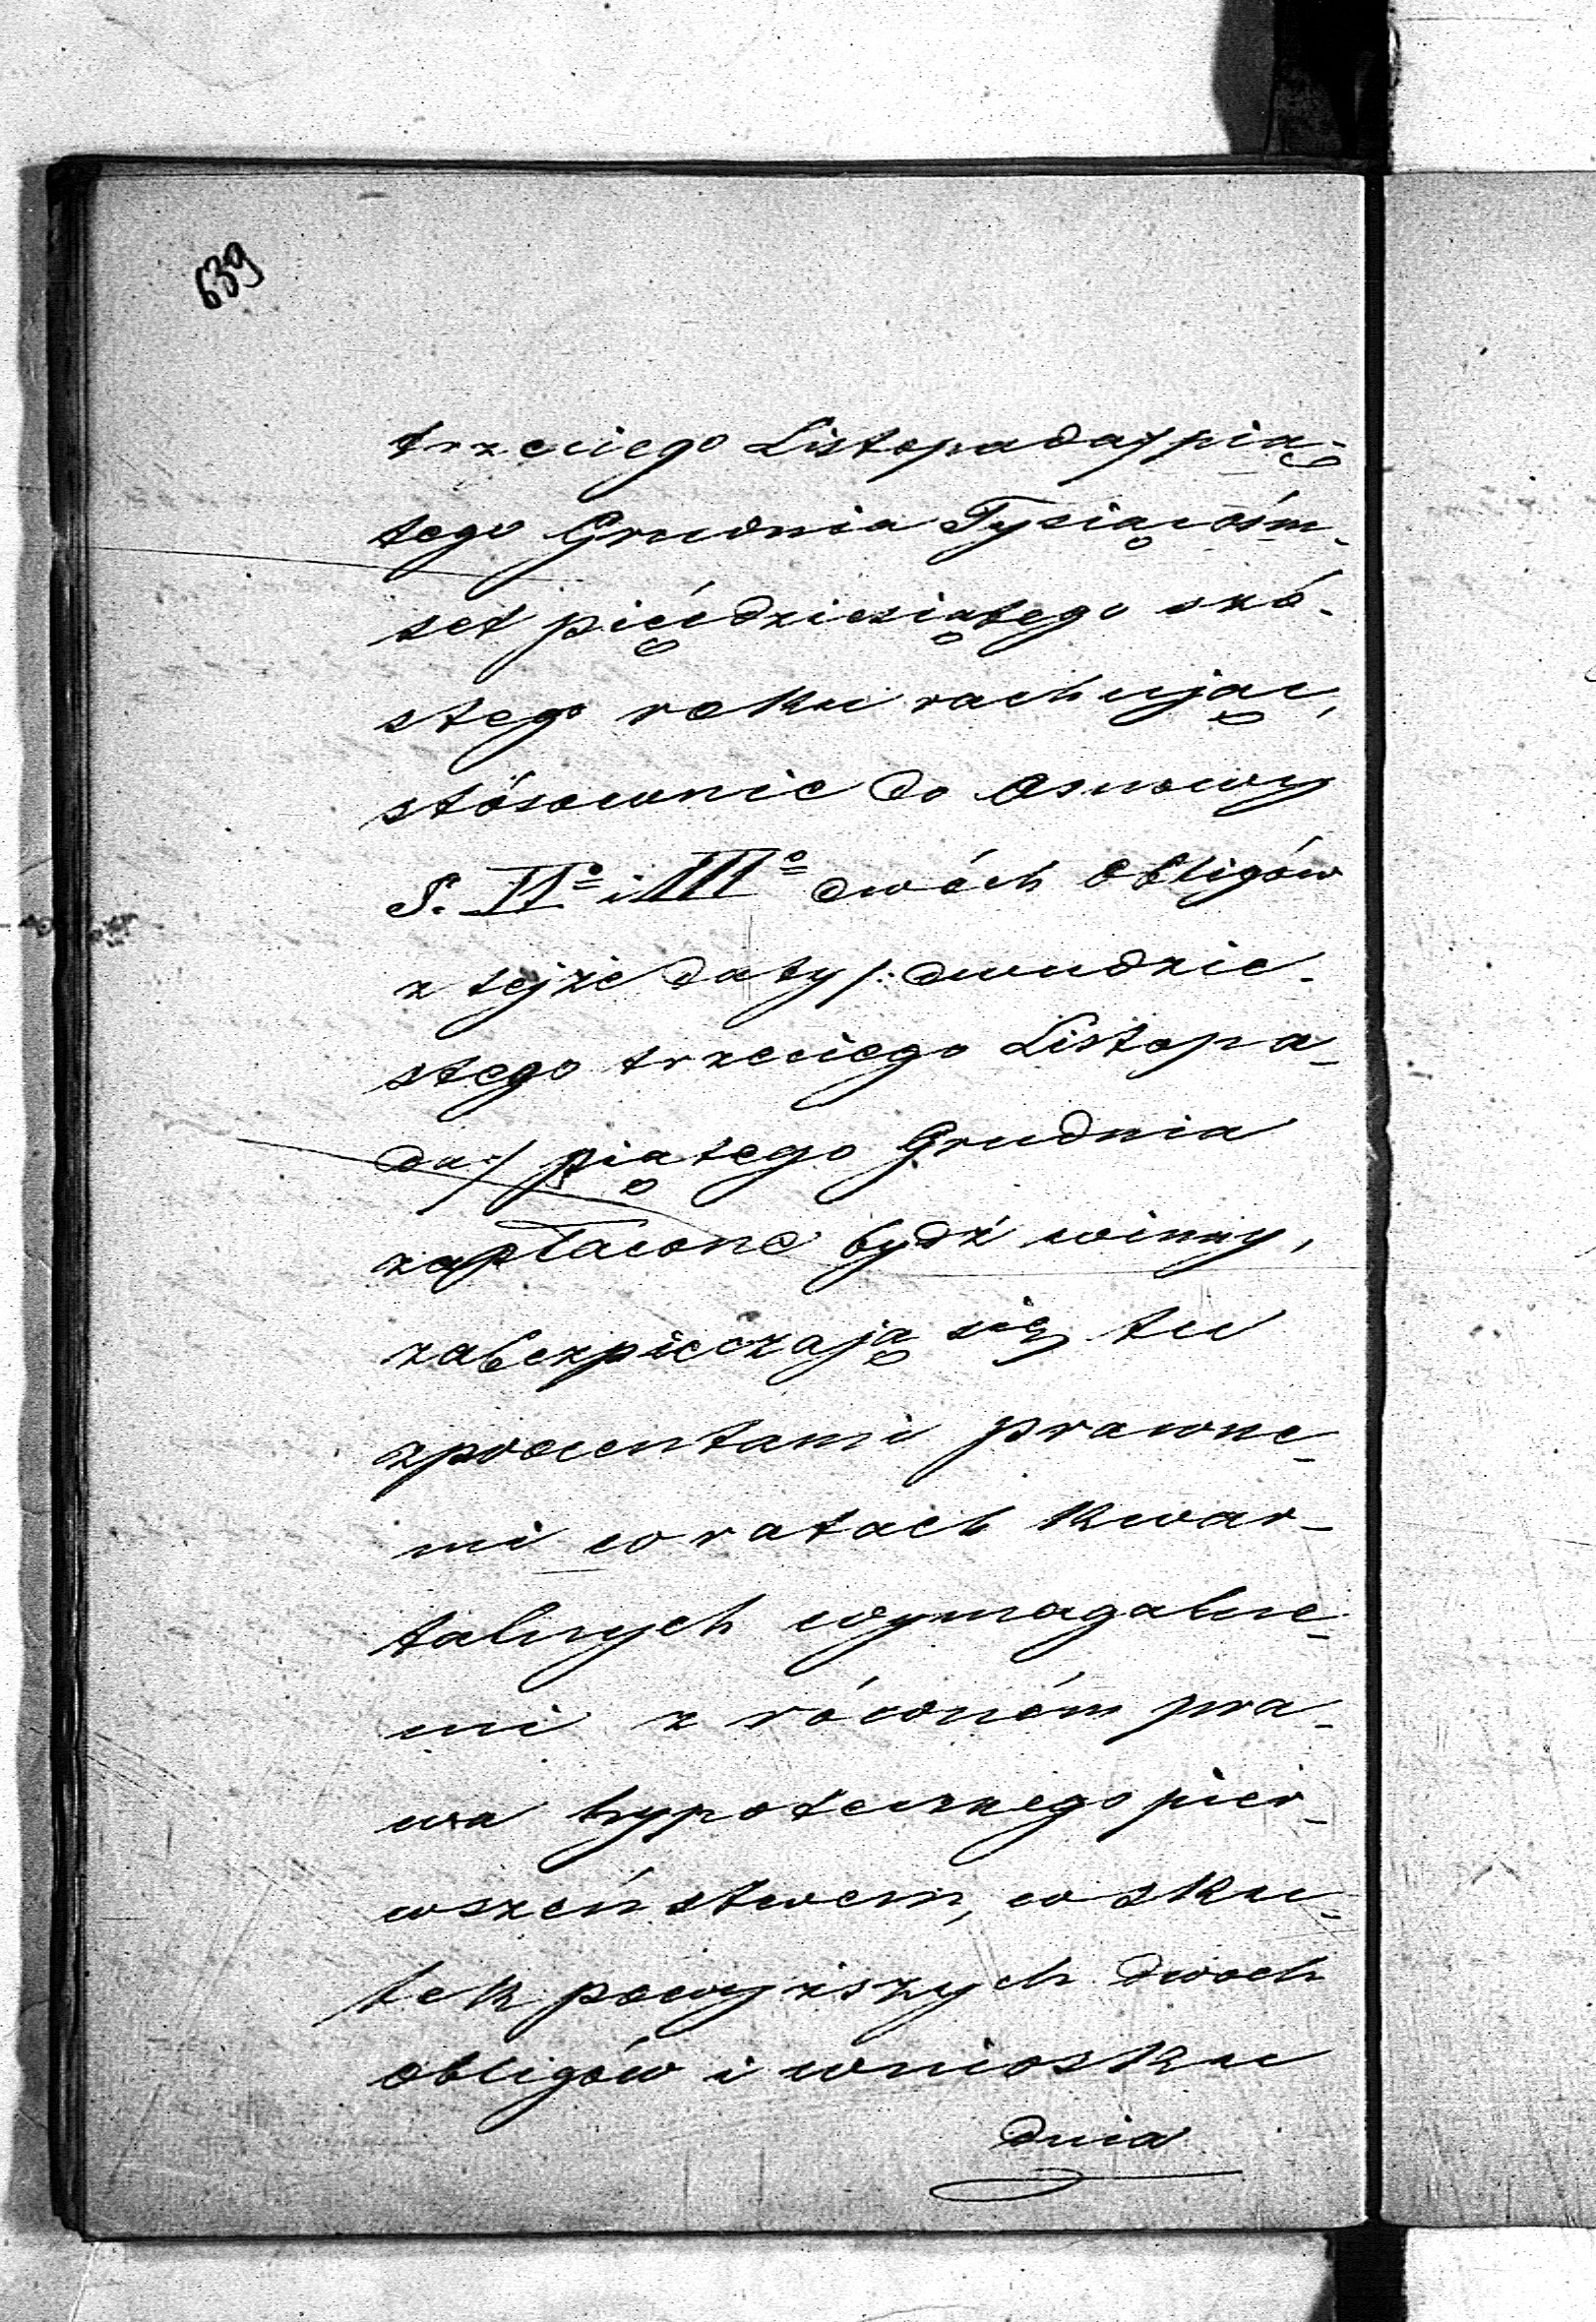 639
trzeciego Listopada/ pią-
tego Grudnia Tysiąc ośm-
set pięćdziesiątego szó-
stego roku rachując,
stósownie do osnowy
§. IIº i IIIº dwóch obligów
z tejże daty /: dwudzie-
stego trzeciego Listopa-
da:/ piątego Grudnia
zapłacone bydź winny,
zabezpieczają się tu
z procentami prawne-
mi w ratach kwar-
talnych wymagalne-
mi z równém pra-
wa hypotecznego pier-
wszeństwem, w sku-
tek powyższych dwoch
obligów i wniosku
dnia